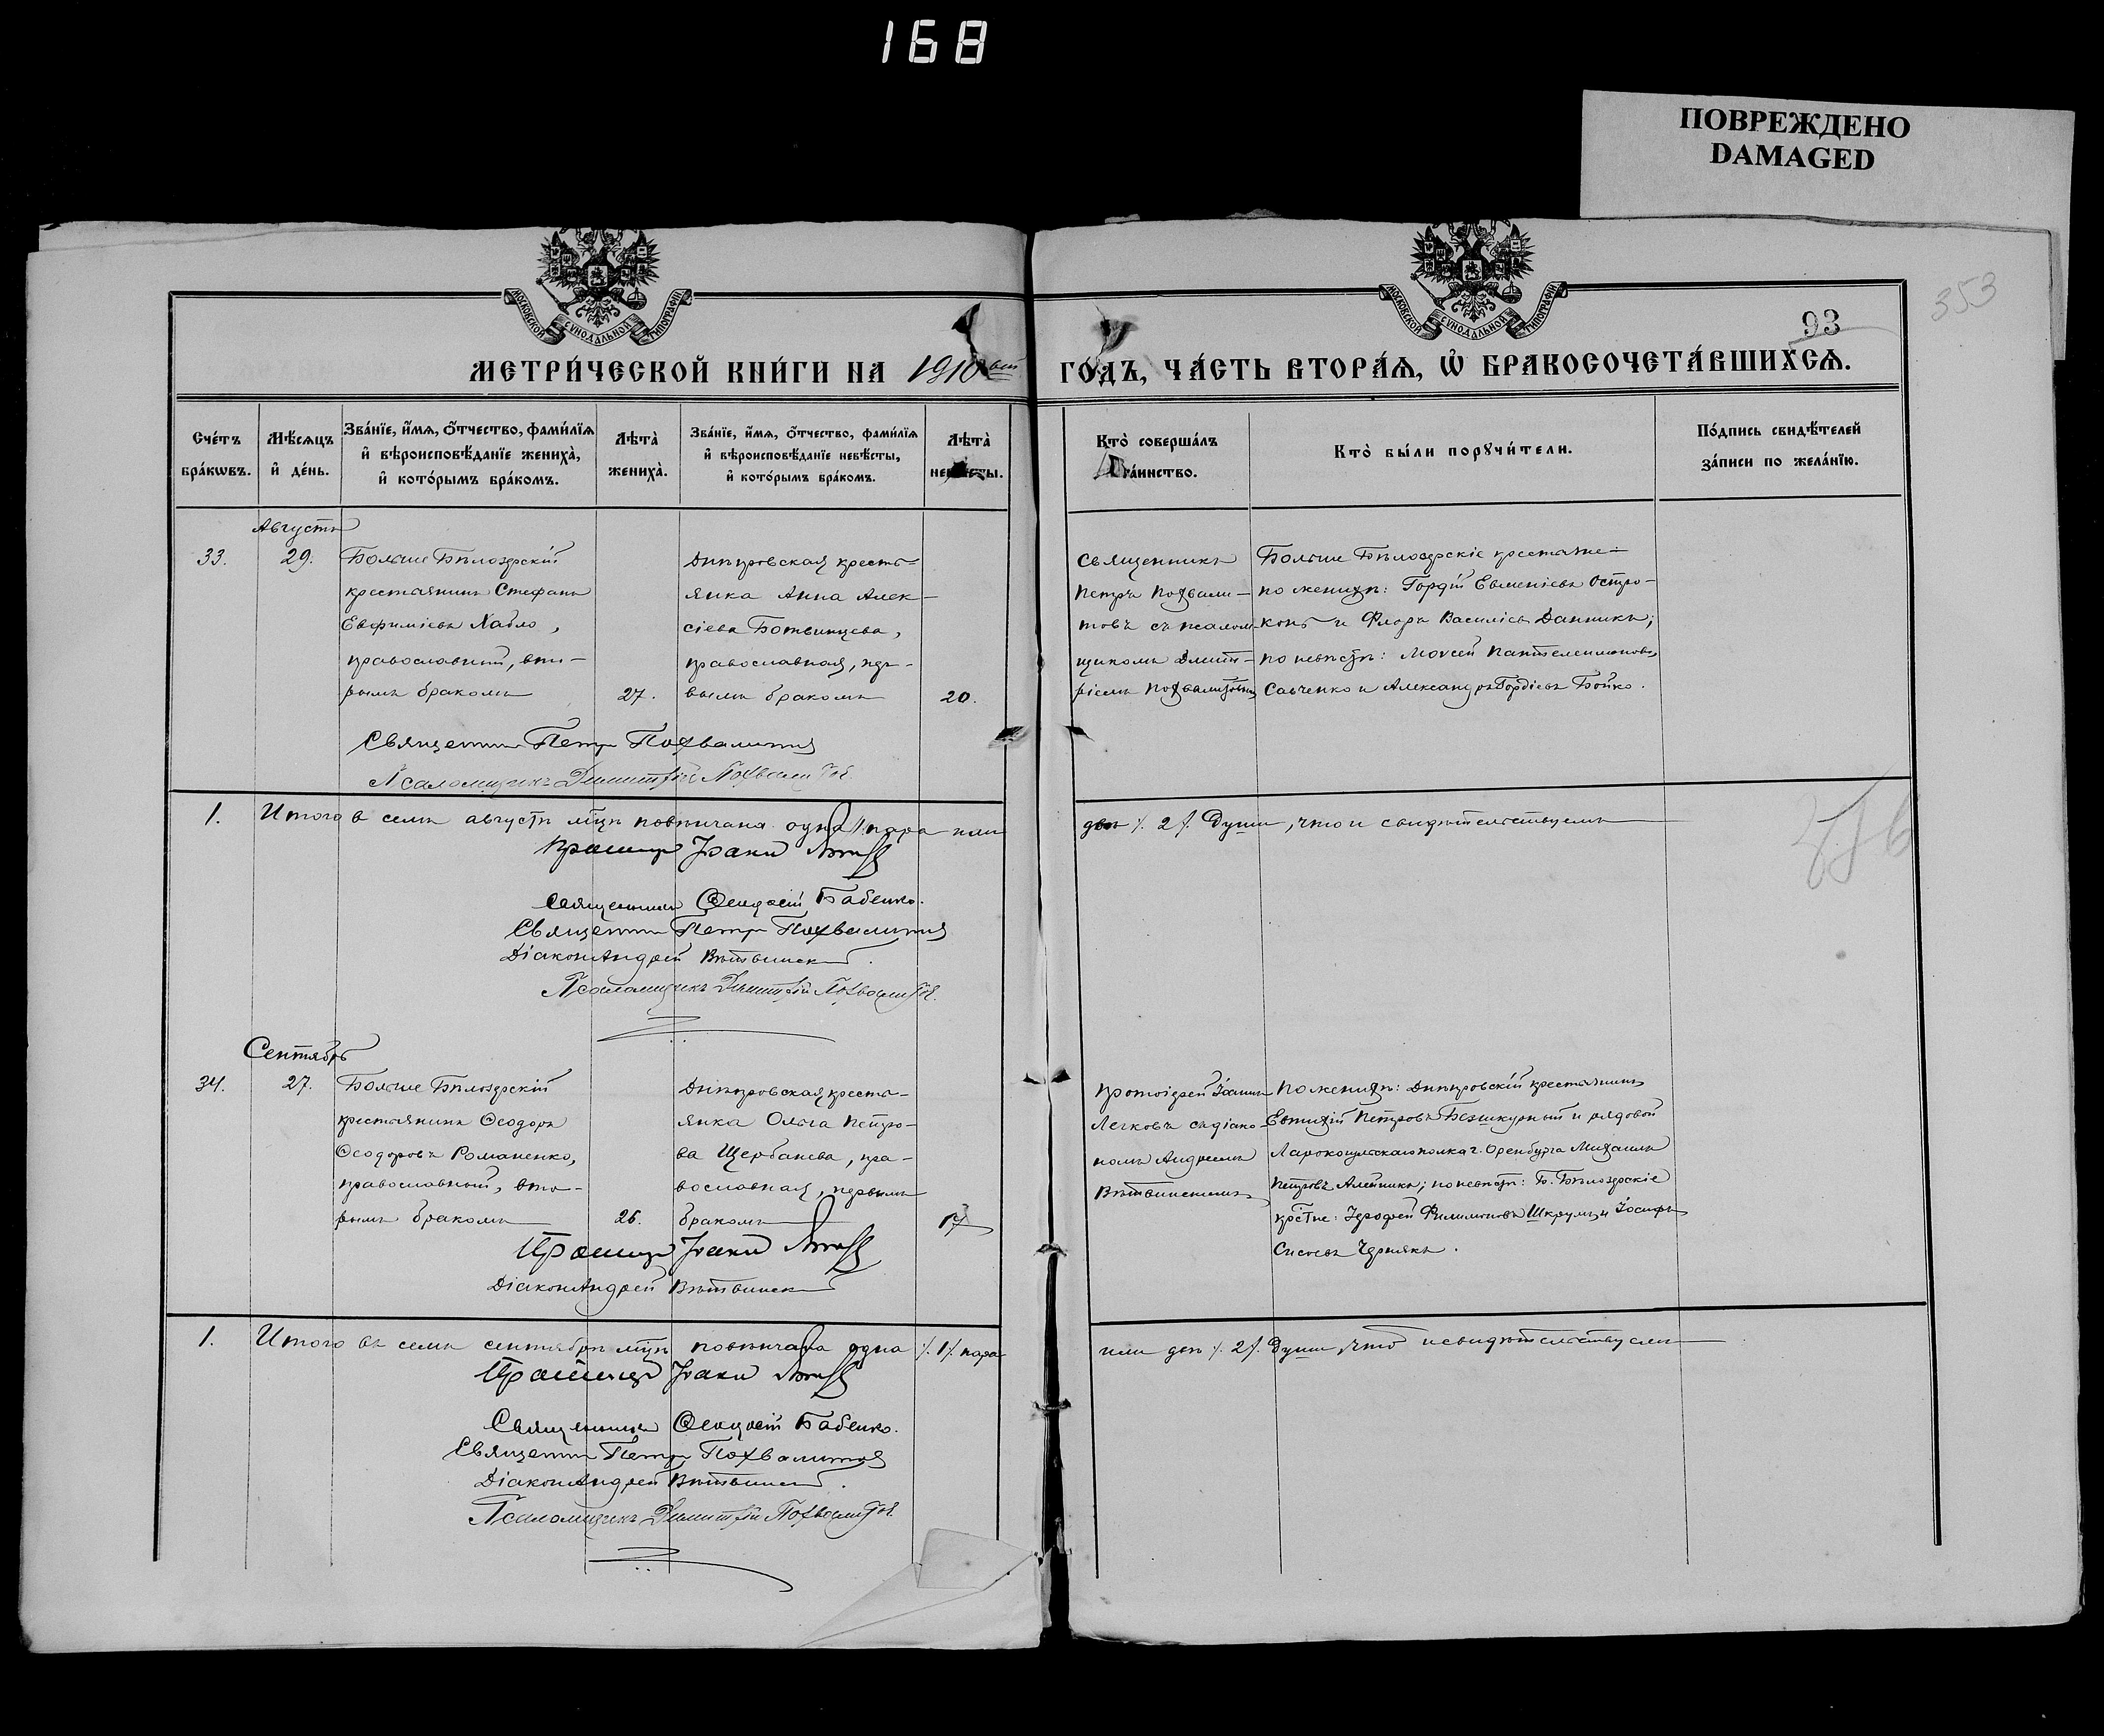 168
ПОВРЕЖДЕНО
DAMAGED
353
93
МОСКОВСКОЙ СУНОДАЛЬНОЙ ТИПОГРАФІИ
МОСКОВСКОЙ СУНОДАЛЬНОЙ ТИПОГРАФІИ
МЕТРИ́ЧЕСКОЙ КНИ́ГИ НА 1910 ый ГО́ДЪ, ЧА́СТЬ ВТОРА́Ѧ, Ѡ҆ БРАКОСОЧЕТА́ВШИХСѦ.
Сче́тъ бра́кѡвъ.
Мѣ́сѧцъ и҆ де́нь.
Зва́нїе, и҆́мѧ, ѻ҆́тчество, фами́лїѧ
и҆ вѣроисповѣ́данїе жениха̀,
и҆ кото́рымъ бра́комъ.
Лѣта̀ жениха̀.
Зва́нїе, и҆́мѧ, ѻ҆́тчество, фами́лїѧ
и҆ вѣроисповѣ́данїе невѣ́сты,
и҆ кото́рымъ бра́комъ.
Лѣта̀ невѣ́сты.
Кто̀ соверша́лъ
та́инство.
Кто̀ бы́ли порꙋчи́тели.
По́дпись свидѣ́телей
за́писи по жела́нїю.
Августъ
33.
29.
Больше Бѣлозерскій
крестьянинъ Стефанъ
Евфиміевъ Хабло,
православный, вто-
рымъ бракомъ
27.
Днѣпровская кресть-
янка Анна Алек-
сіева Ботвинцева,
православная, пер-
вымъ бракомъ
20.
Священникъ
Петръ Похвали-
товъ съ псалом-
щикомъ Дмит-
ріемъ Похвалитовымъ
Больше Бѣлозерскіе крестьяне
по женихѣ: Гордій Евменіевъ Остро-
конь и Флоръ Василіевъ Данникъ;
по невѣстѣ: Моѵсей Пантелеимоновъ
Савченко и Александръ Гордіевъ Бойко.
Священникъ Петръ Похвалитовъ
Псаломщикъ Димитрій Похвалитовъ
1.
Итого въ семъ августѣ мцѣ повѣнчана одна /1/ пара или
двѣ /. 2 /. души, что и свидѣтельствуемъ
Священникъ Ѳеодосій Бабенко.
Священникъ Петръ Похвалитовъ
Діаконъ Андрей Вѣтвинскій.
Псаломщикъ Димитрій Похвалитовъ.
Сентябрь
34.
27.
Больше Бѣлозерскій
крестьянинъ Ѳеодоръ
Ѳеодоровъ Романенко,
православный, вто-
рымъ бракомъ
26.
Днѣпровская кресть-
янка Ольга Петро-
ва Щербанева, пра-
вославная, первымъ
бракомъ
17
Протоіерей Іоаннъ
Легковъ съ діако-
номъ Андреемъ
Вѣтвинскимъ
По женихѣ: Днѣпровскій крестьянинъ
Евтихій Петровъ Безшкурный и рядовой
Ларокопульскаго полка г. Оренбурга Михаилъ
Петровъ Алейникъ; по невѣстѣ: Б. Бѣлозерскіе
крестне: Іерофей Филимоновъ Шкрумъ и Іосифъ
Сисоевъ Чернякъ.
Діаконъ Андрей Вѣтвинскій
1.
Итого въ семъ сентябрѣ мцѣ повѣнчана одна /. 1 /. пара
или двѣ /. 2 /. души, что и свидѣтельствуемъ
Священникъ Ѳеодосій Бабенко.
Священникъ Петръ Похвалитовъ
Діаконъ Андрей Вѣтвинскій.
Псаломщикъ Димитрій Похвалитовъ.